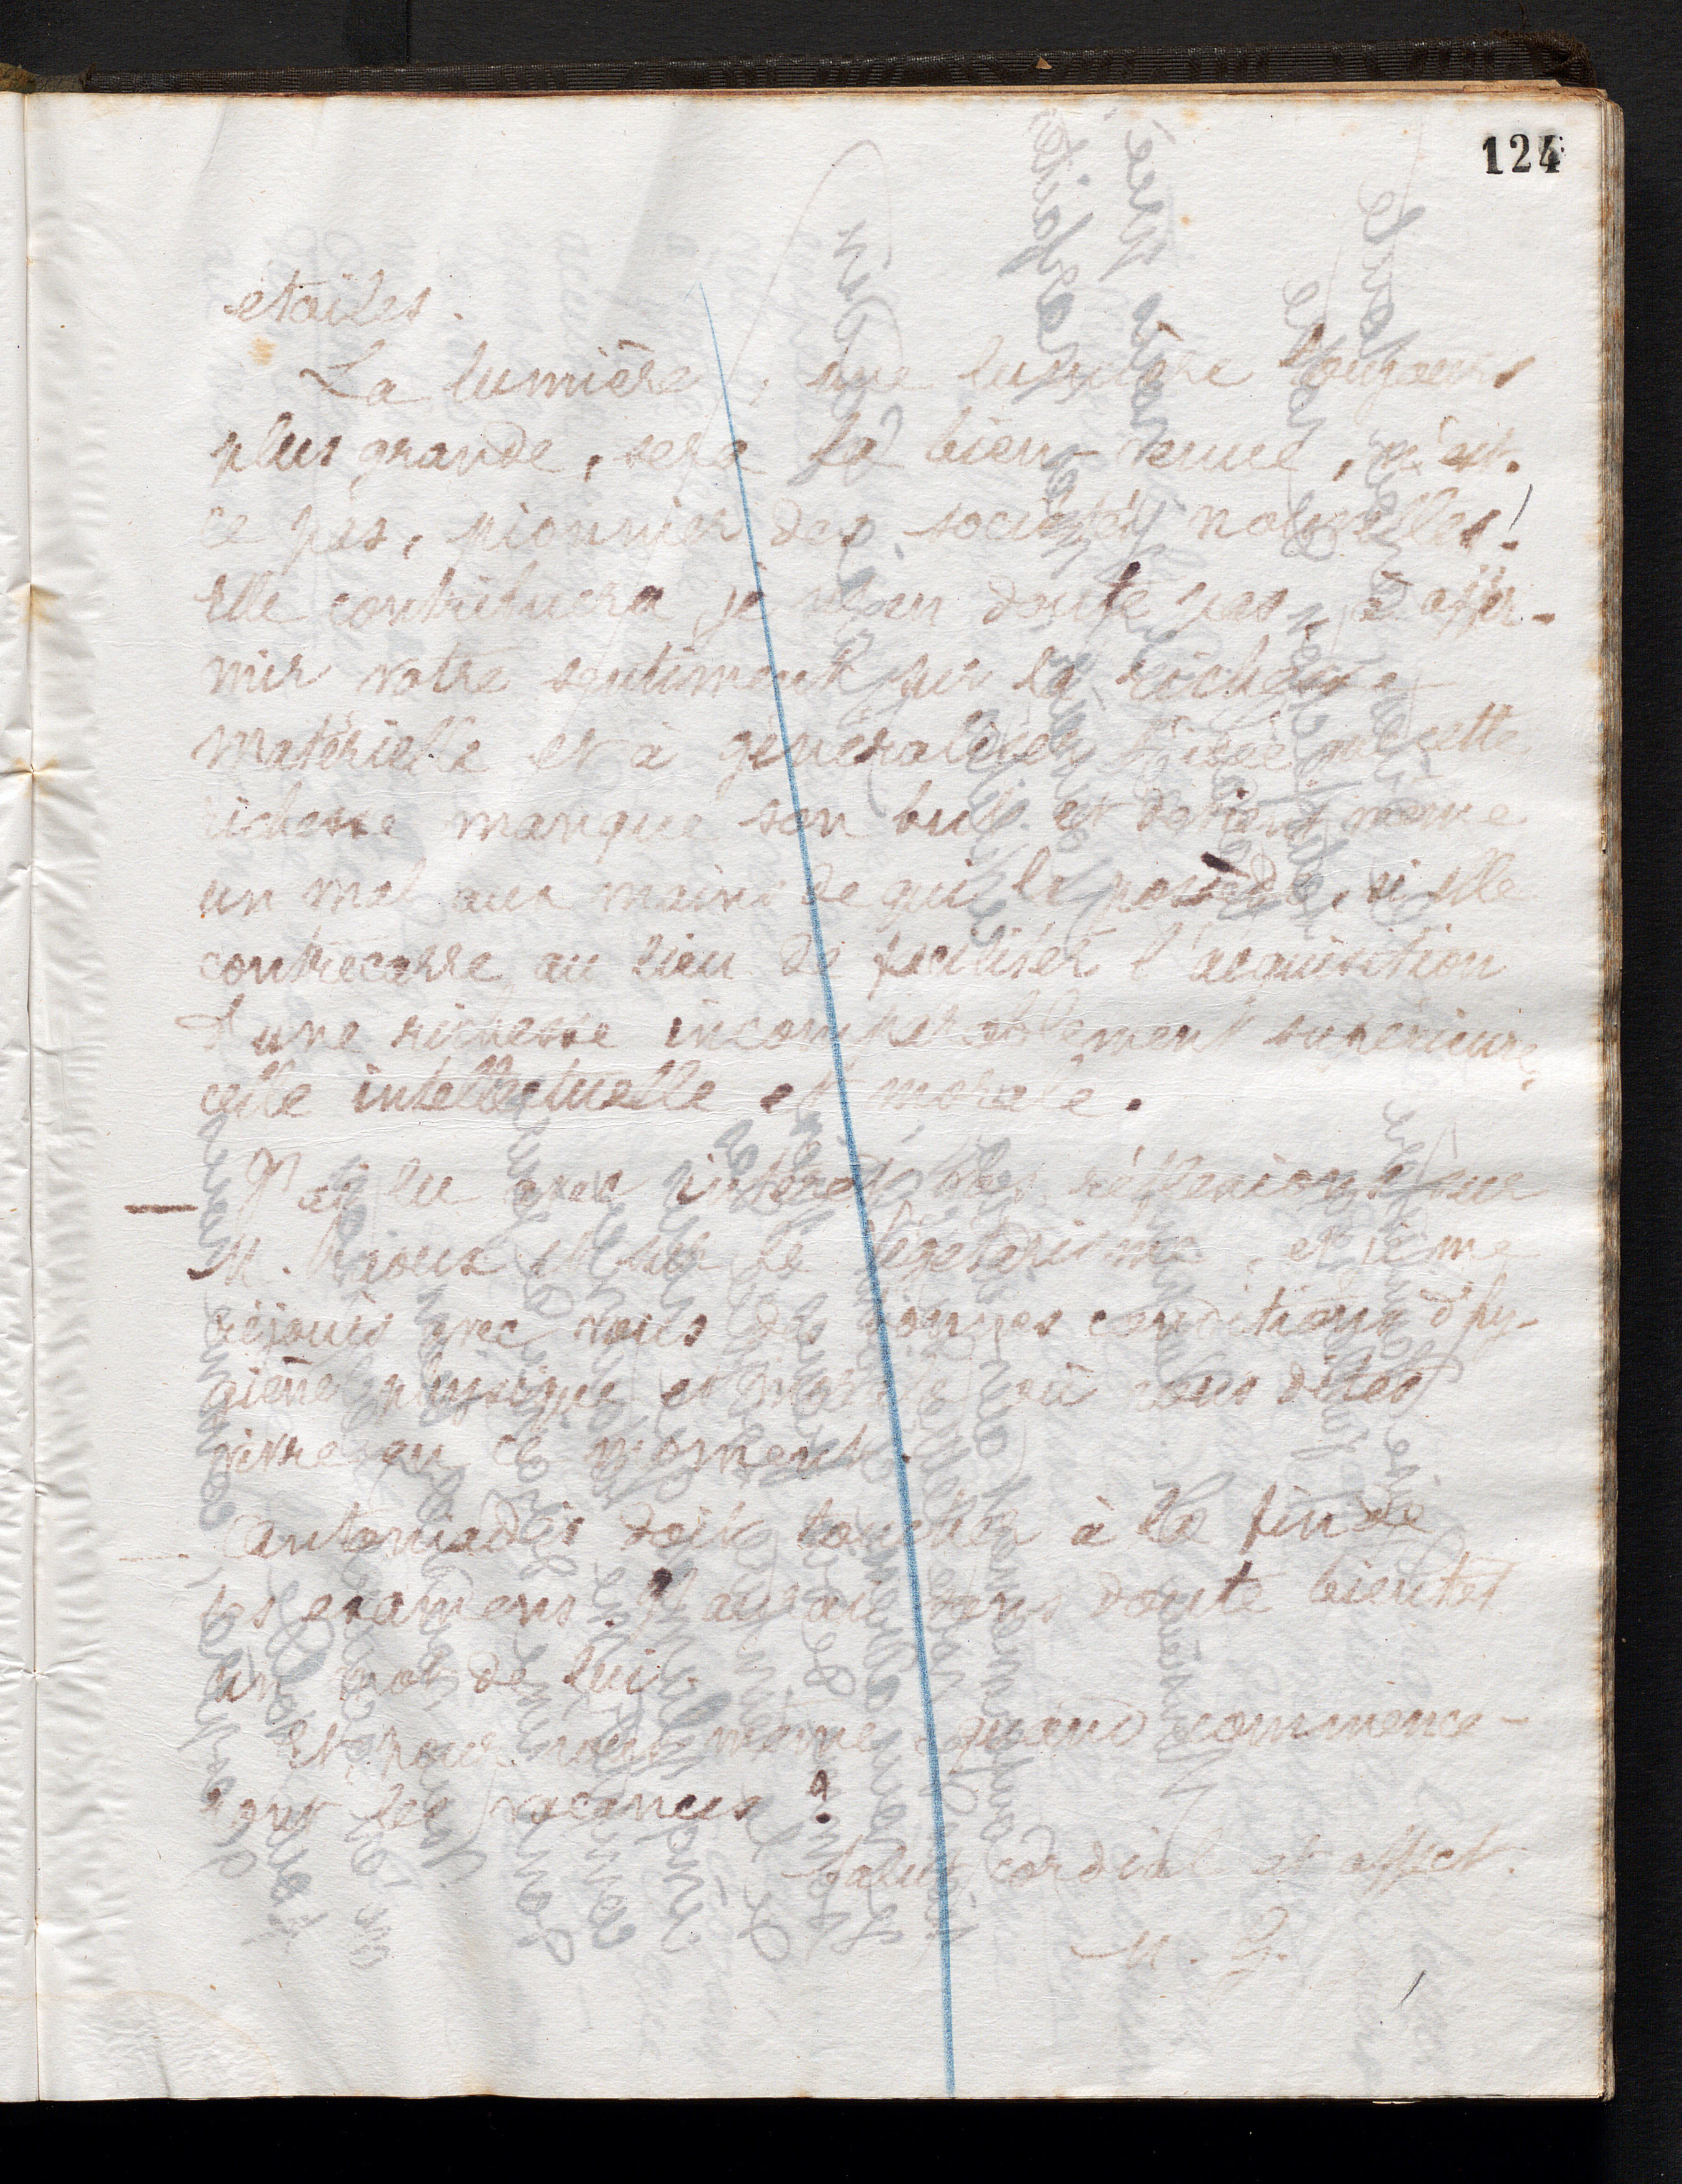 124
étoiles.
La lumière, une lumière toujours
plus grande, sera la bien-venue, n'est-
ce pas, pionnier des sociétés nouvelles!
elle contribuera, je n'en doute pas, à affir-
mir votre sentiment sur la richesse
matérielle et à généraliser l'idée que cette
richesse manque son but et devient même
un mal aux mains de qui la possède, si elle
contrecarre au lieu de faciliter l'acquisition
d'une richesse incomparablement supérieure,
celle intellectuelle et morale.
J'ai lu avec intérêt les réflexions sur
M. et sur le légétarisme, et je me
réjouis avec vous des bonnes conditions d'hy-
giène physique et morale où vous dites
vivre en ce moment.
Antoniadès doit toucher à la fin de
ses examens. J'aurai sans doute bientôt
un mot de lui.
Et pour vous même, quand commence-
ront les vacances?
Salut cordial et affect.
M. J.